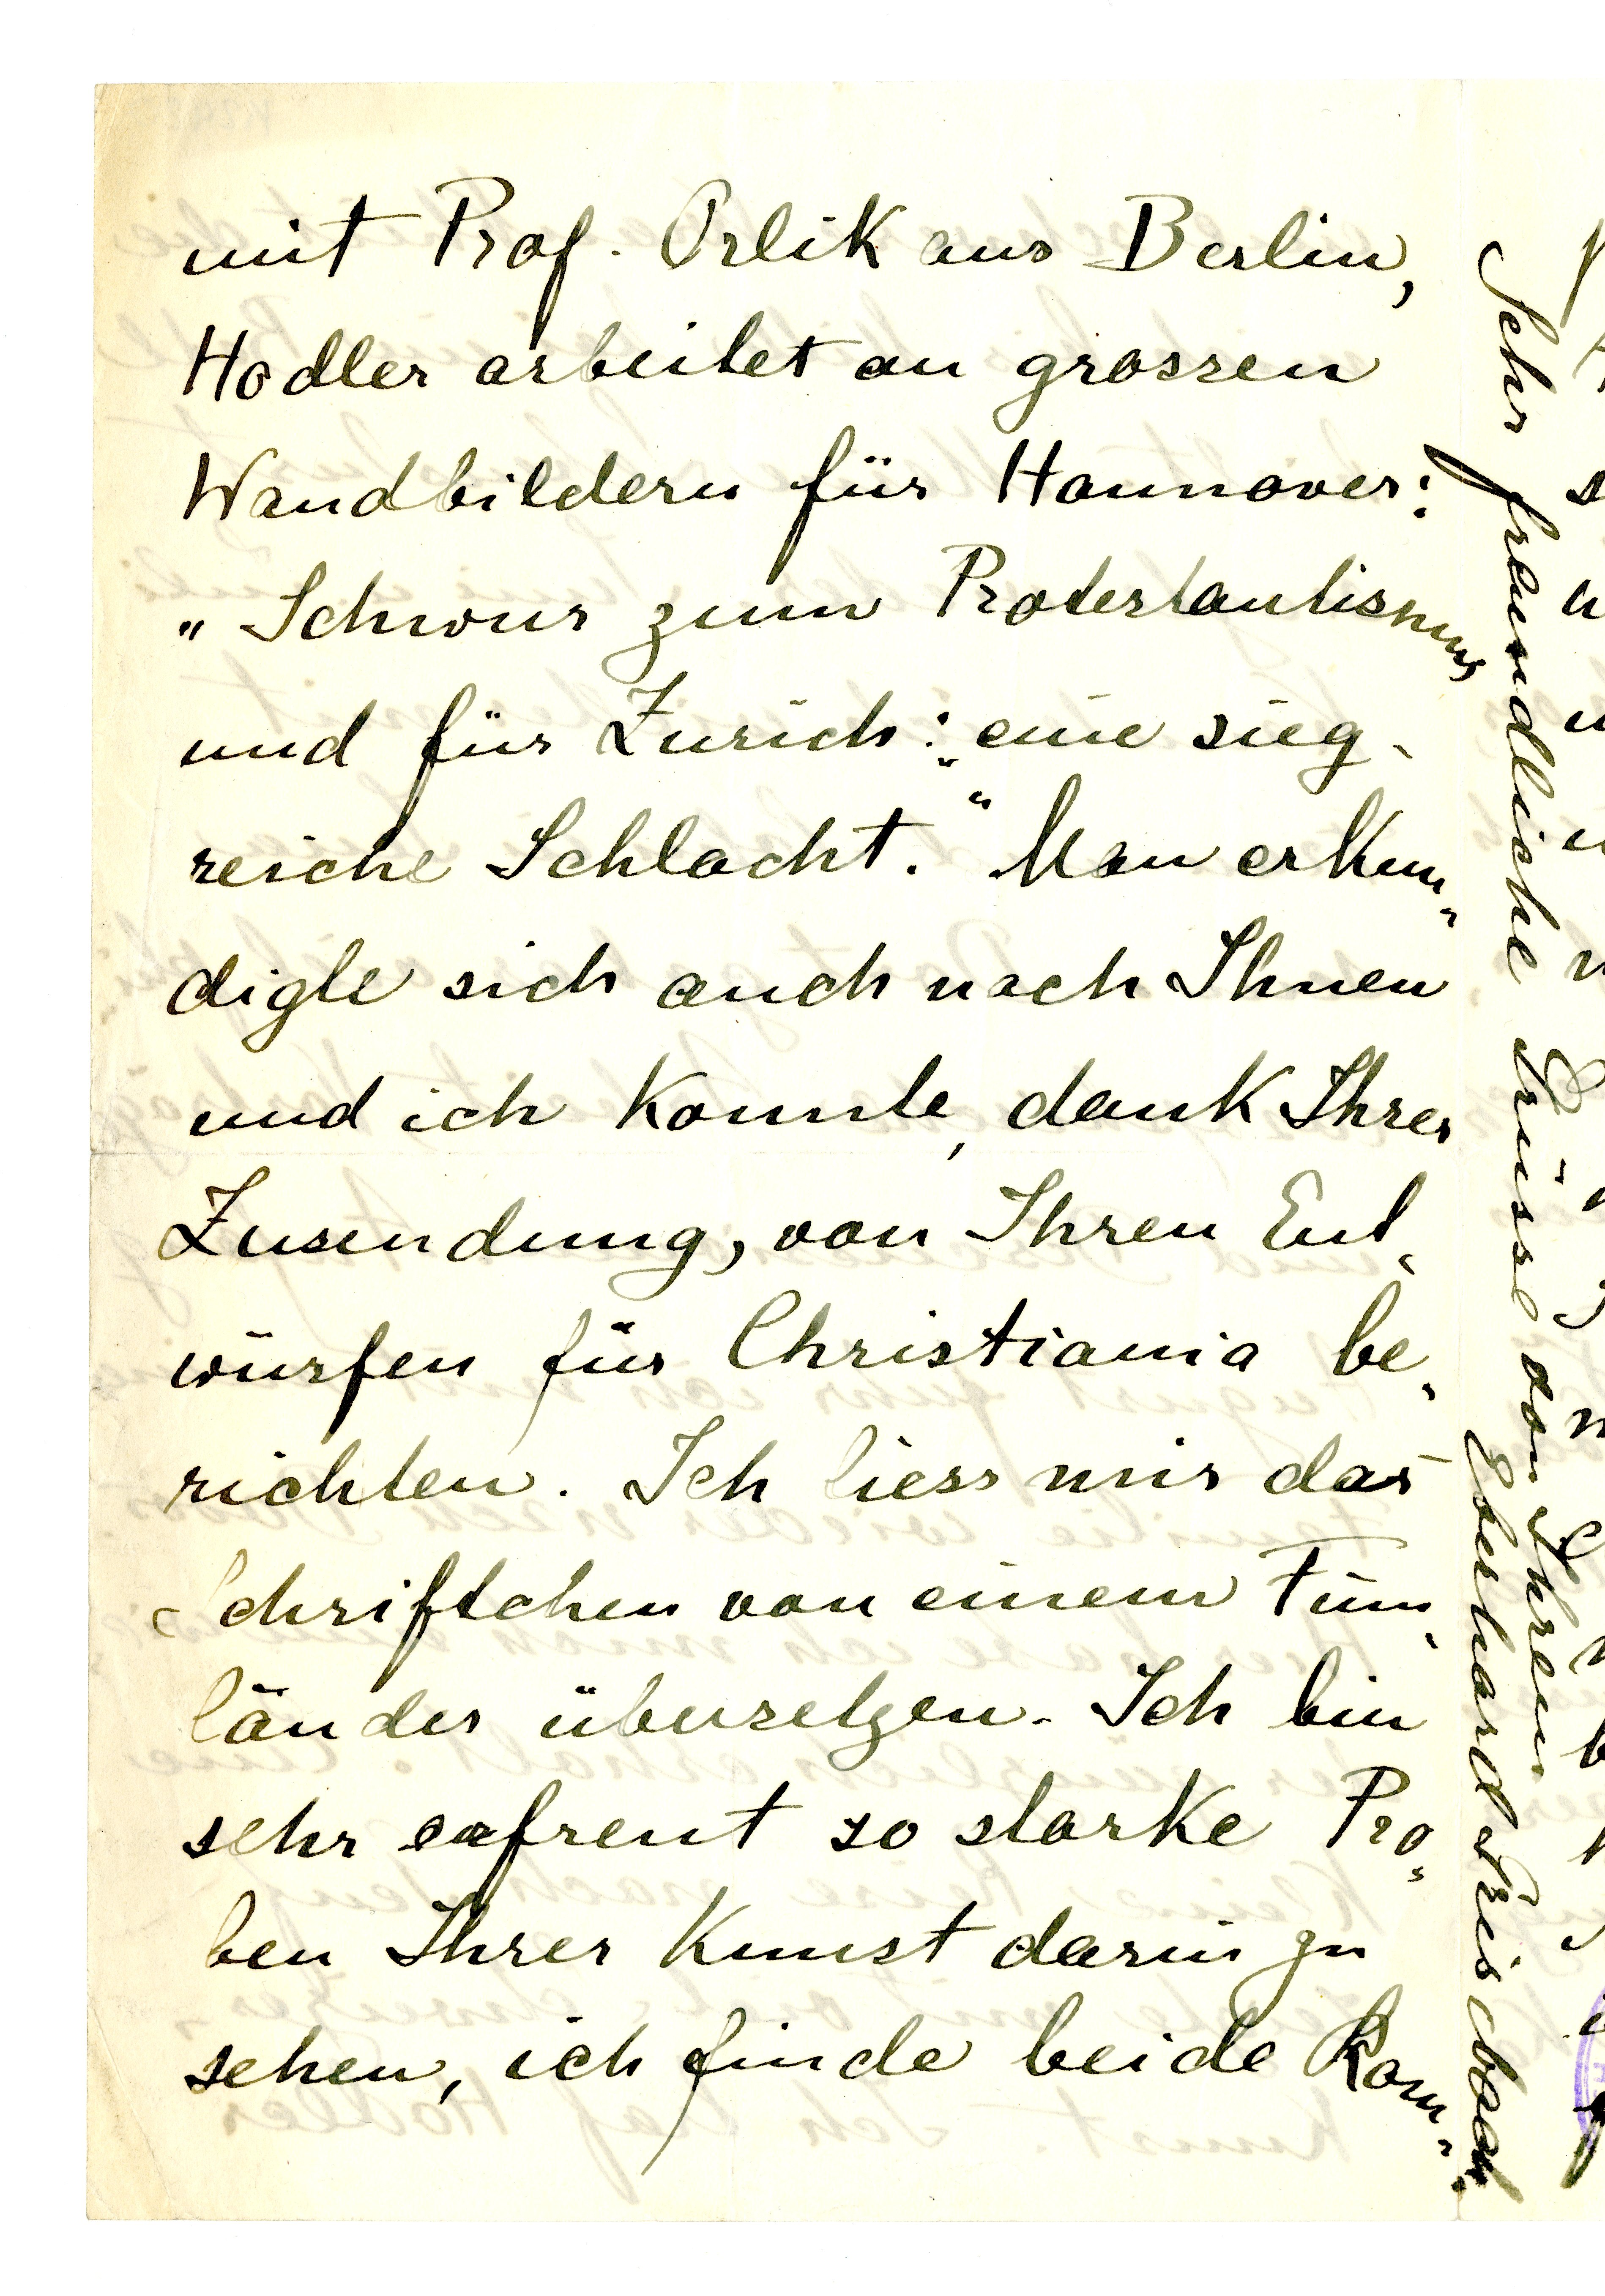 mit Prof. Orlik aus Berlin,
Hodler arbeitet an grossen
Wandbildern für Hannover:
„Schwur zum Protestantismus
und für Zürich: „eine sieg-
reiche Schlacht." Man erkun-
digte sich auch nach Ihnen
und ich konnte, dank Ihrer
Zusendung, von Ihren Ent-
würfen für Christiania be-
richten. Ich liess mir das
Schriftchen von einem Finn-
länder übersetzen. Ich bin
sehr erfreut so starke Pro-
ben Ihrer Kunst darin zu
sehen, ich finde beide Kom-
Sehr freundliche Grüsse von Ihrem
Eberhard Grisebach.